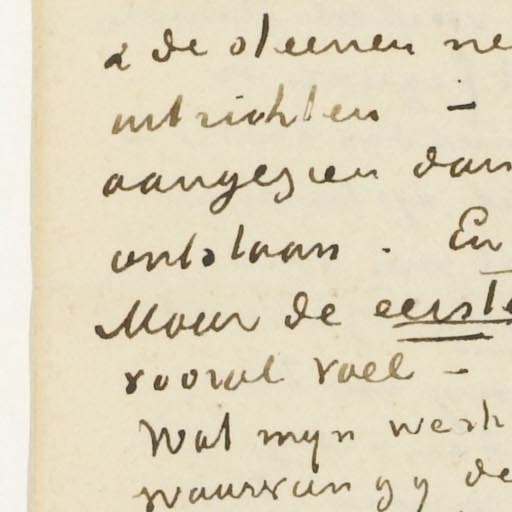 & de steenen ne
uitrichten –
aangezien dan
ontstaan. En
Maar de eerste
vooral veel –
Wat mijn werk
waarvan gy de